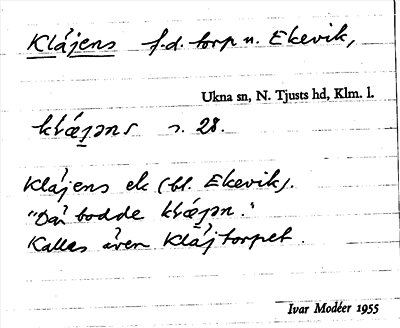 Klájens f.d. torp u. Ekevik,
Ukna sn, N. Tjusts hd, Klm. l.
s. 28.
Klájens ek (bl. Ekevik).
"Där bodde
Kallas även Klájtorpet.
Ivar Modéer 1955